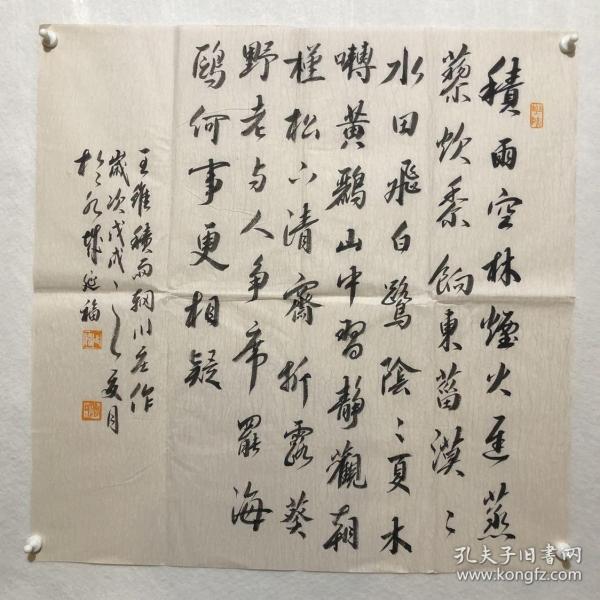 積雨空林煙火遲蒸
藜炊黍餉東菑漠〻
水田飛白鷺陰〻夏木
囀黃鸝山中習靜觀朝
槿松下清齋折露葵
野老与人爭席罷海
鷗何事更相疑
王維積雨輞川庄作
歲次戊戌之夏月
於
福
孔夫子旧书网
www.kongfz.com